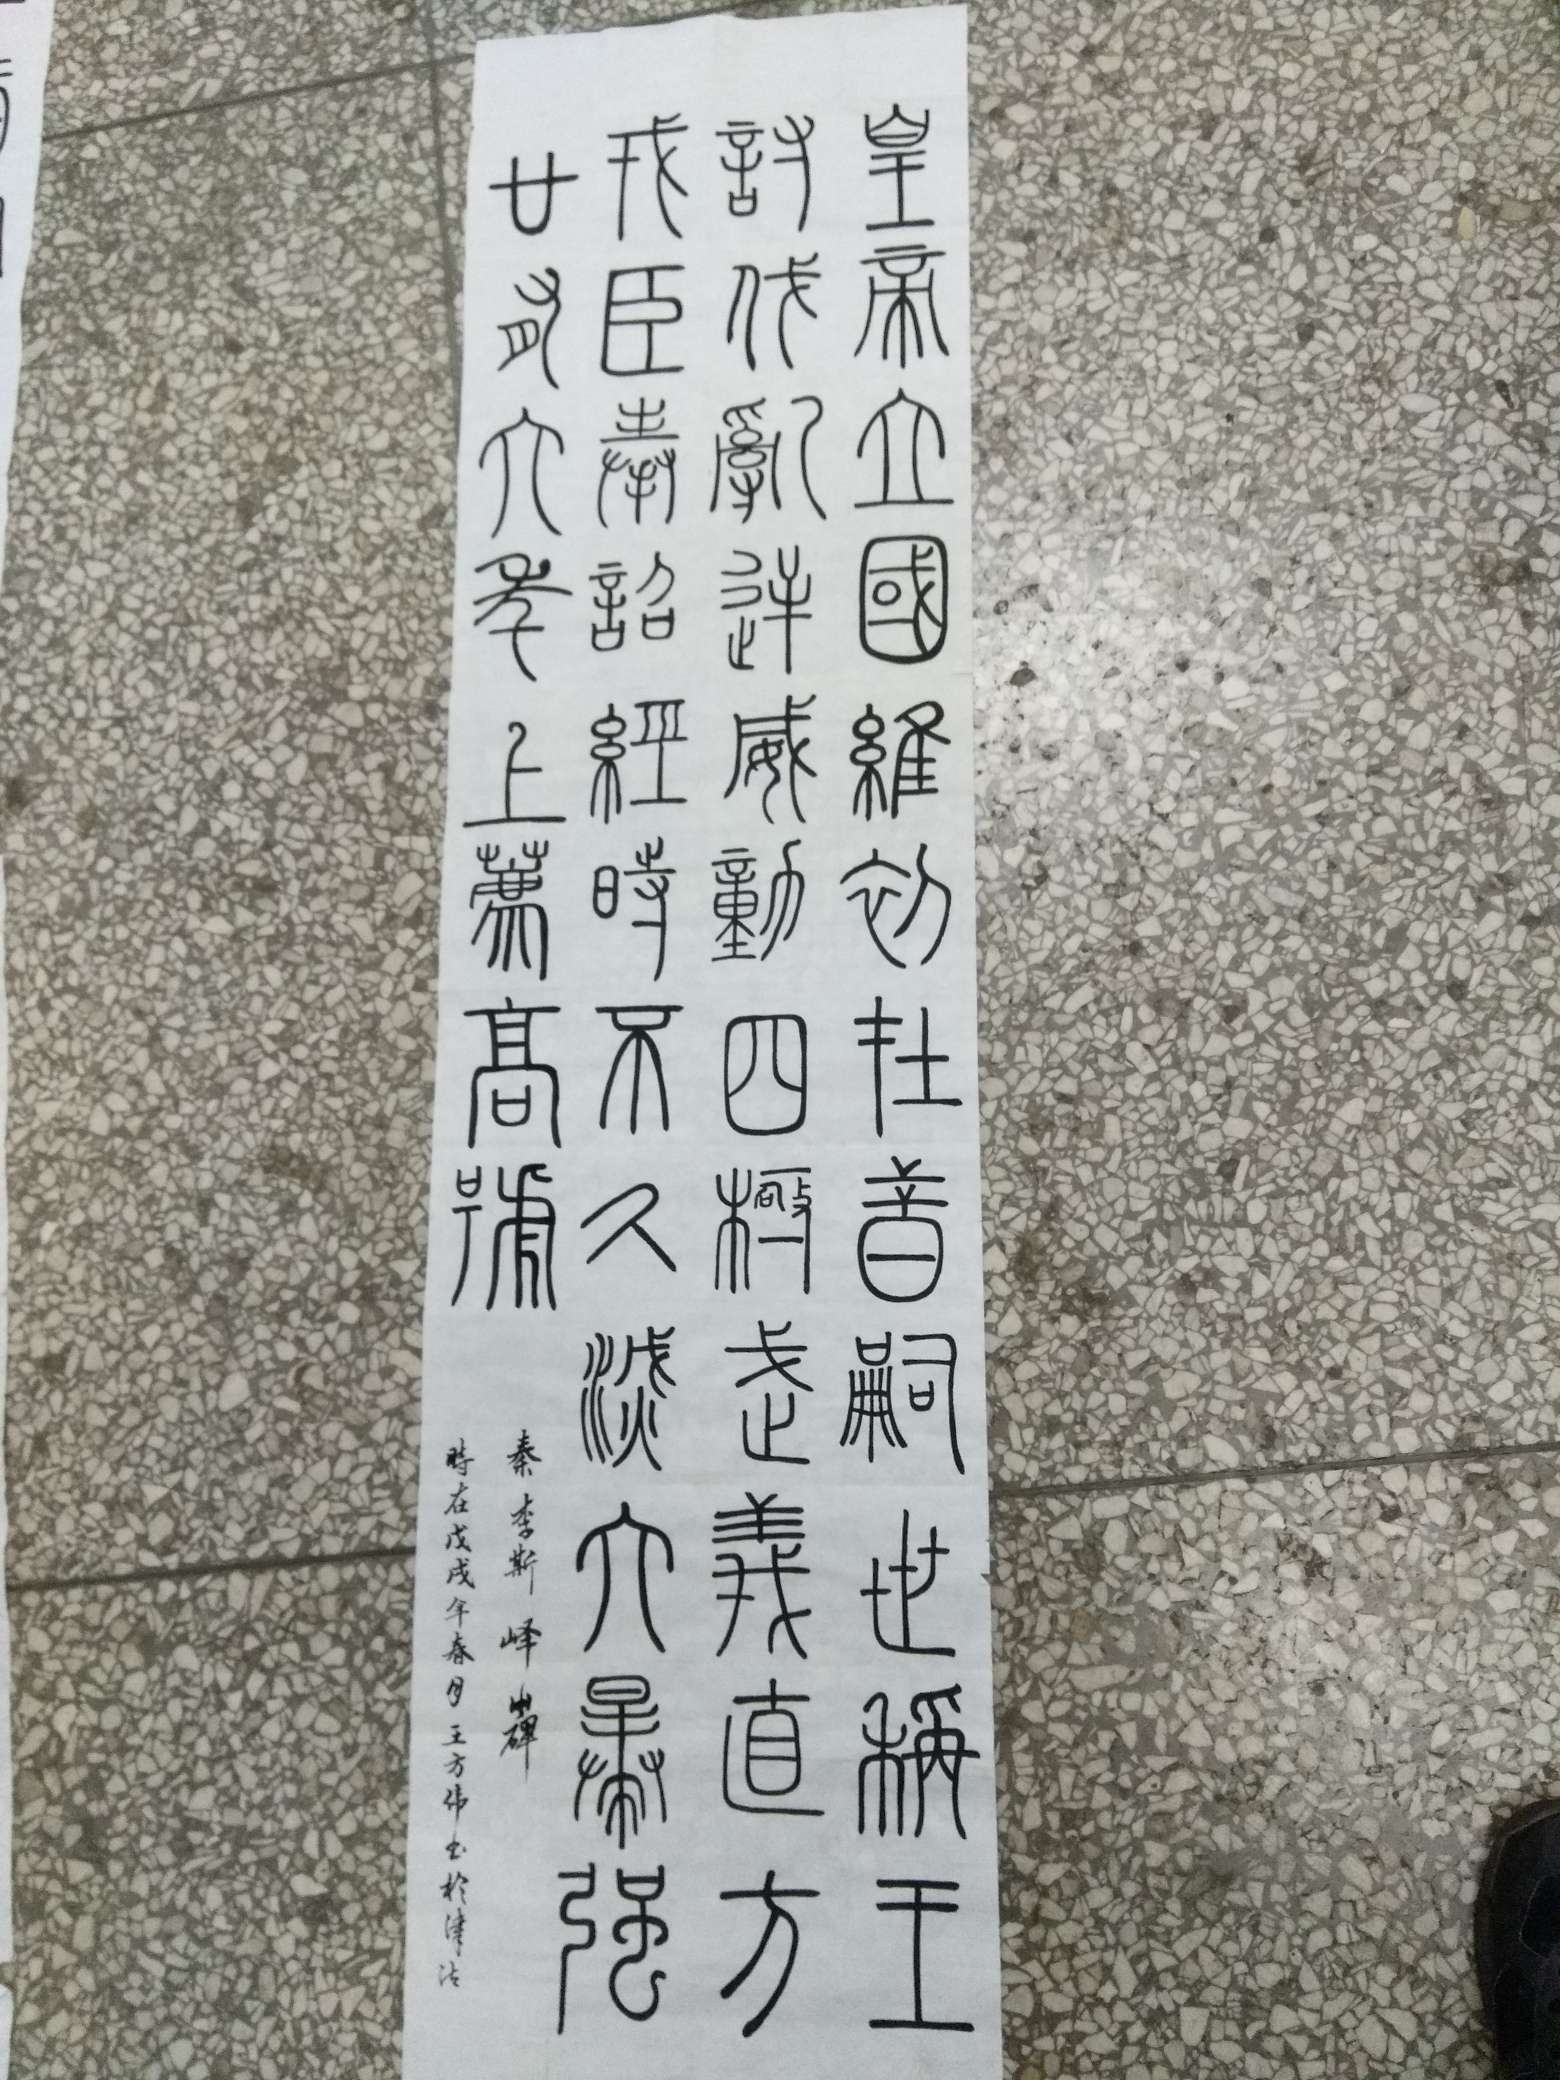 皇帝立國維初在昔嗣世稱王
討伐亂逆威動四極武義直方
戎臣奉詔經時不久滅六暴强
廿有六年上薦高號
秦李斯峄山碑
時在戊戌年春月王方伟书於津沽